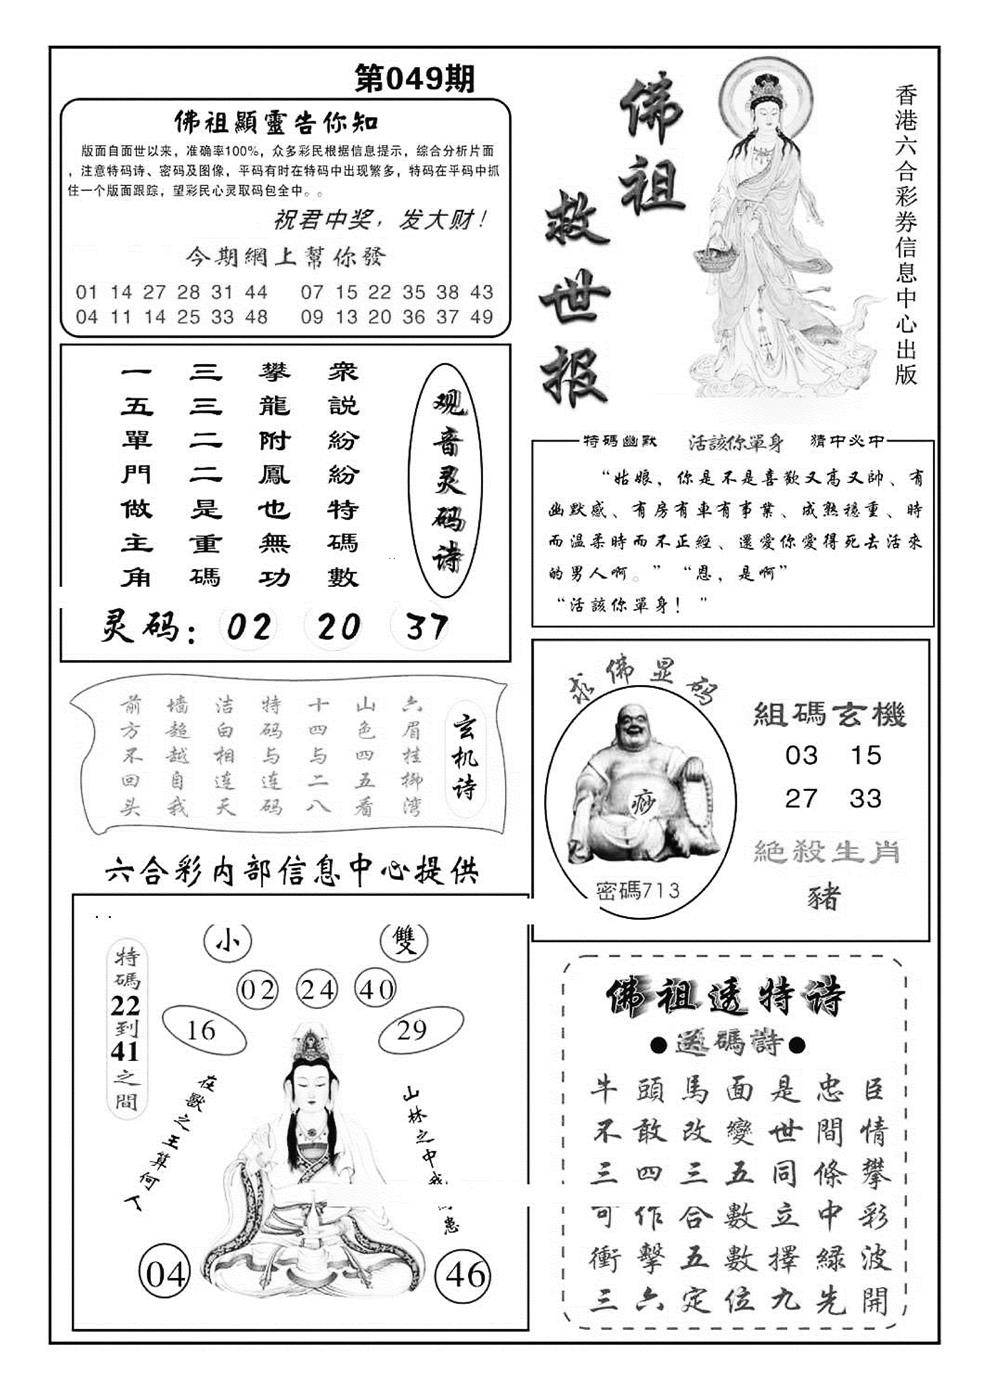 第049期
佛祖顯靈告你知
版面自面世以来，准确率100%，众多彩民根据信息提示，综合分析片面
，注意特码诗、密码及图像，平码有时在特码中出现繁多，特码在平码中抓
住一个版面跟踪，望彩民心灵取码包全中。。
祝君中奖，发大财！
今期網上幫你發
01 14 27 28 31 44 07 15 22 35 38 43
04 11 14 25 33 48 09 13 20 36 37 49
佛祖
救世报
香港六合彩券信息中心出版
观音灵码诗
衆説紛紛特碼數
攀龍附鳳也無功
三三二二是重碼
一五單門做主角
灵码：02 20 37
特碼幽默 活該你單身 猜中必中
“姑娘，你是不是喜歡又高又帥、有
幽默感、有房有車有事業、成熟穩重、時
而温柔時而不正經、還愛你愛得死去活來
的男人啊。” “恩，是啊”
“活該你單身！”
玄机诗
六眉桂柳湾
山色四五看
十四与二八
特码与连码
洁白相连天
墙超越自我
前方不回头
六合彩内部信息中心提供
求佛显码
痧
密碼713
組碼玄機
03 15
27 33
絕殺生肖
豬
特碼22到41之間
小 雙
02 24 40
16 29
在獸之王算何人
山林之中我
患
04 46
佛祖透特诗
●送碼詩●
牛頭馬面是忠臣
不敢改變世間情
三四三五同條攀
可作合數立中彩
衝擊五數擇綠波
三六定位九先開